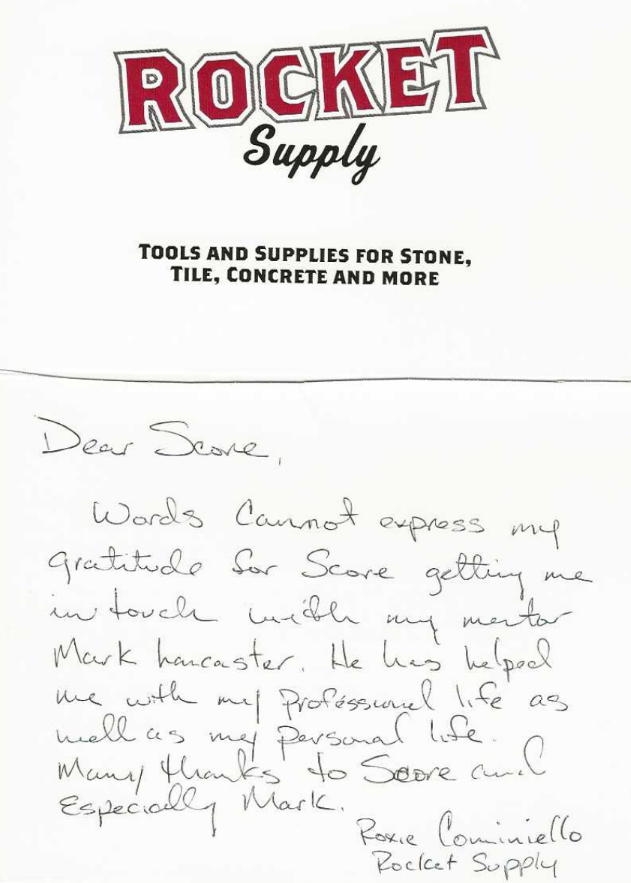 ROCKET
Supply
TOOLS AND SUPPLIES FOR STONE,
TILE, CONCRETE AND MORE
Dear Score,
Words Cannot express my
gratitude for Score getting me
in touch with my mentor
Mark Lancaster. He has helped
me with my professional life as
well as my personal life.
Many thanks to Score and
Especially Mark.
Roxie Cominiello
Rocket Supply